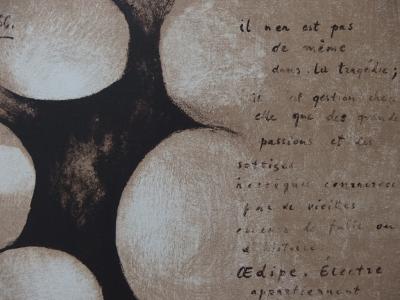 66.
il n'en est pas
de même
dans la tragédie;
il est question chez
elle que des grande
passions et des
sottises
héroïques consacrées
par de vieilles
de fable ou
d'histoire
Œdipe, Électre
appartiennent